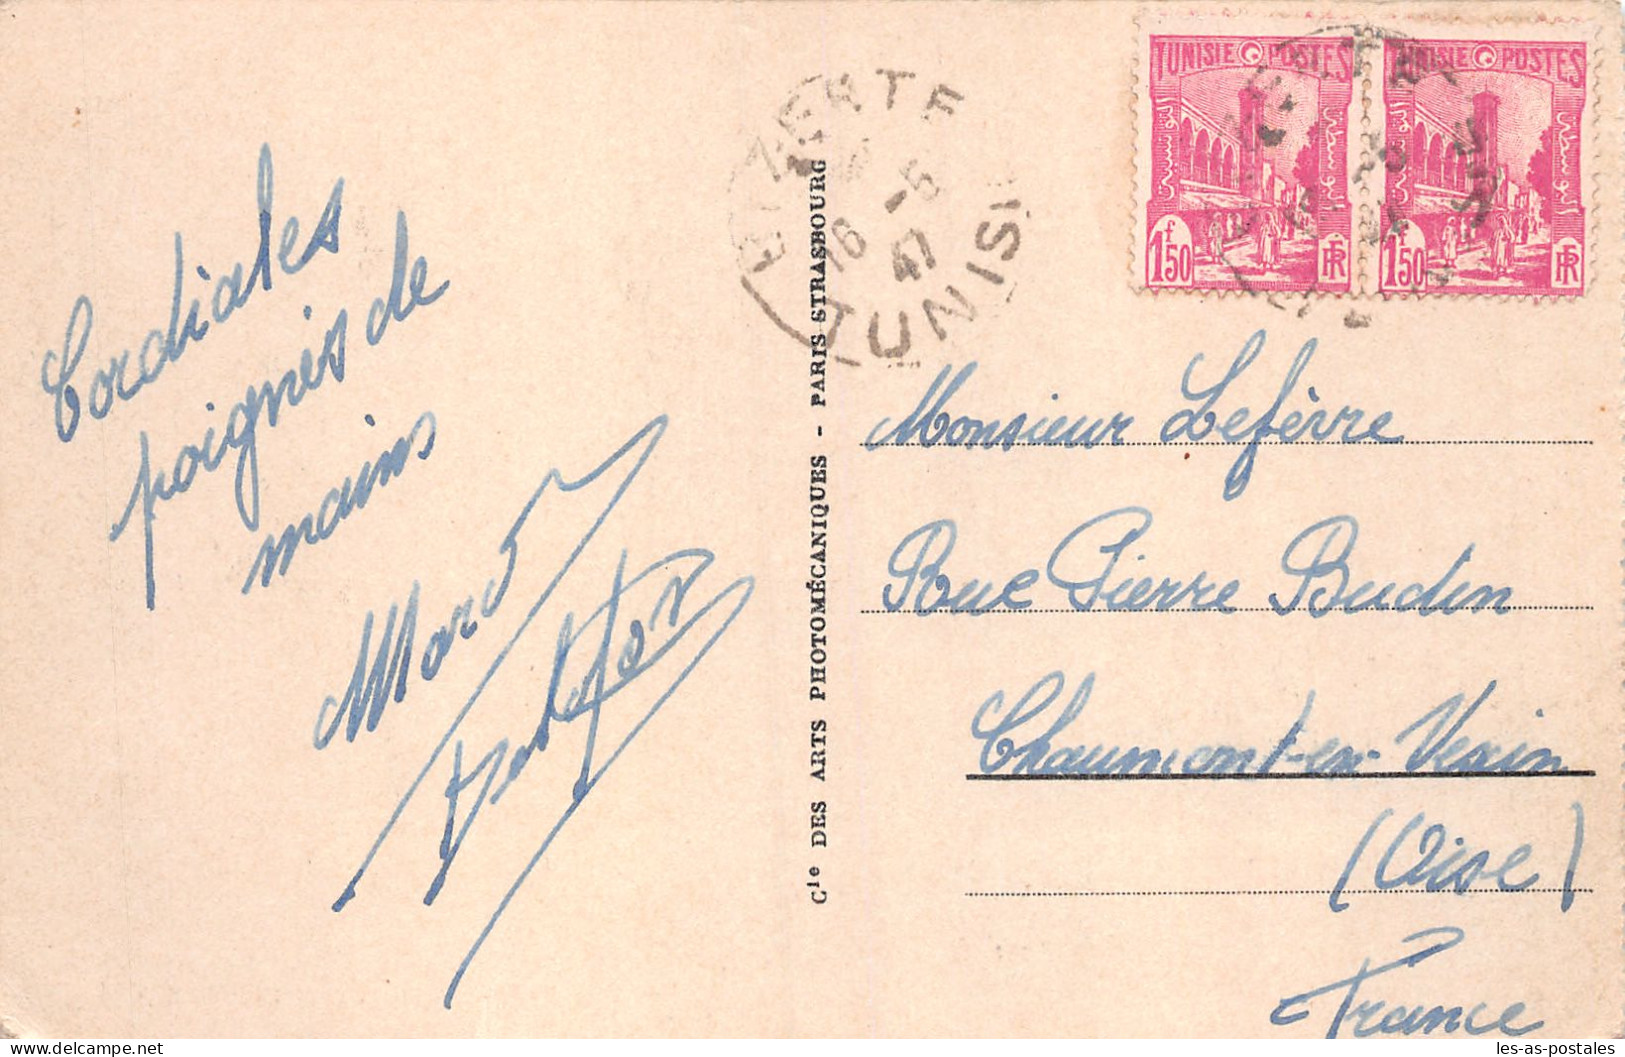 Cordiales
poignés de
mains
BIZERTE
16 -5
47
TUNISIE
Cie DES ARTS PHOTOMÉCANIQUES - PARIS STRASBOURG
TUNISIE POSTES
1f50
RF
TUNISIE POSTES
1f50
RF
Monsieur Lefèvre
Rue Pierre Budin
Chaumont-en-Vexin
(Oise)
France
delcampe.net
les-as-postales